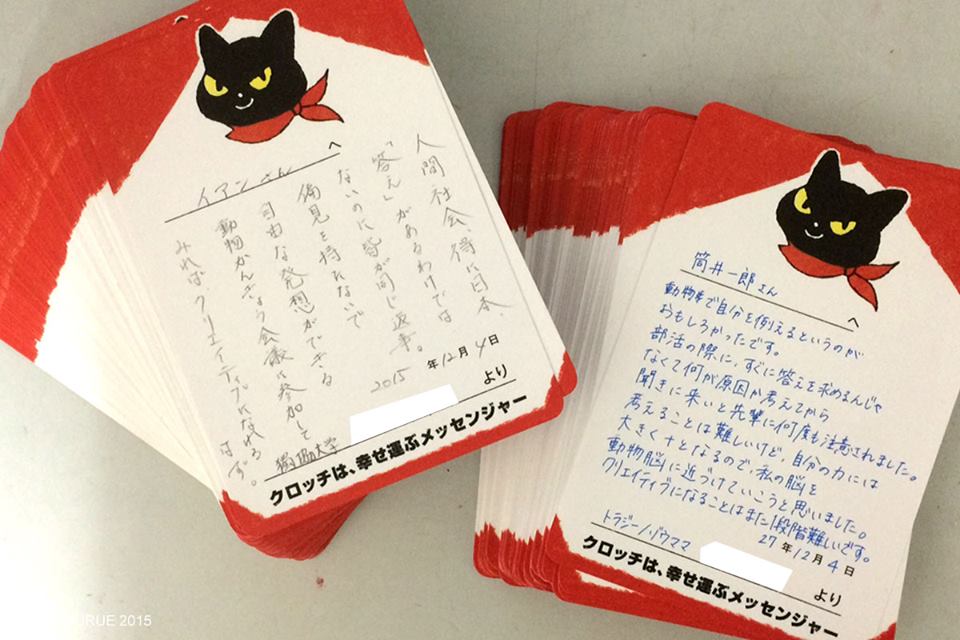 イアンさん
へ
人間社会、特に日本、
「答え」があるわけでは
ないのに皆が同じ返事。
偏見を持たないで
自由な発想ができる
動物かんきょう会議に参加して
みればクリエイティブになれる
はず。
2015年12月4日
獨協大学
より
クロッチは、幸せ運ぶメッセンジャー
筒井一郎さん
へ
動物で自分を例えるというのが
おもしろかったです。
部活の際に、すぐに答えを求めるんじゃ
なくて何が原因か考えてから
聞きに来いと先輩に何度も注意されました。
考えることは難しいけど、自分の力には
大きく+となるので、私の脳を
動物脳に近づけていこうと思いました。
クリエイティブになることはまた1段階難しいです。
27年12月4日
トラジーノ・ゾウママ
より
クロッチは、幸せ運ぶメッセンジャー
URUE 2015